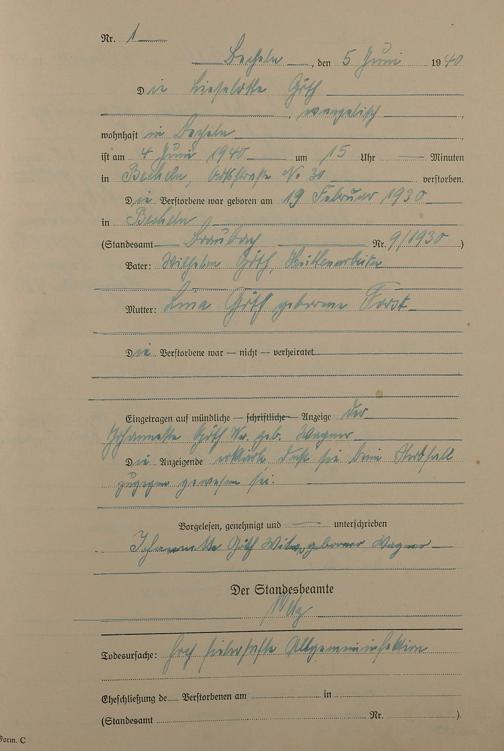 Nr. 1
Becheln, den 5 Juni 1940
Die Lieselotte Göth
, evangelisch,
wohnhaft in Becheln
ist am 4 Juni 1940 um 15 Uhr — Minuten
in Becheln, No 30 verstorben.
Die Verstorbene war geboren am 19 Februar 1930
in Becheln
(Standesamt Braubach Nr. 9/1930)
Vater: Wilhelm Göth, Hüttenarbeiter
Mutter: Lina Göth geborene
Die Verstorbene war — nicht — verheiratet
Eingetragen auf mündliche — schriftliche — Anzeige der
Johannette Göth Ww. geb. Wagner
Die Anzeigende erklärte, daß sie beim Sterbfall
zugegen gewesen sei.
Vorgelesen, genehmigt und — unterschrieben
Johannette Göth Witwe, geborene Wagner
Der Standesbeamte
Todesursache: fieberhafte Allgemeininfektion
Eheschließung de Verstorbenen am in
(Standesamt Nr. )
Form. C